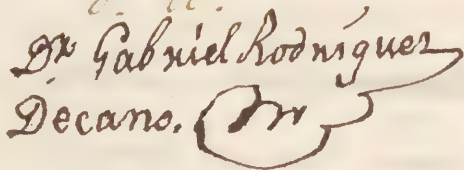 Dr. Gabriel Rodriguez
Decano.